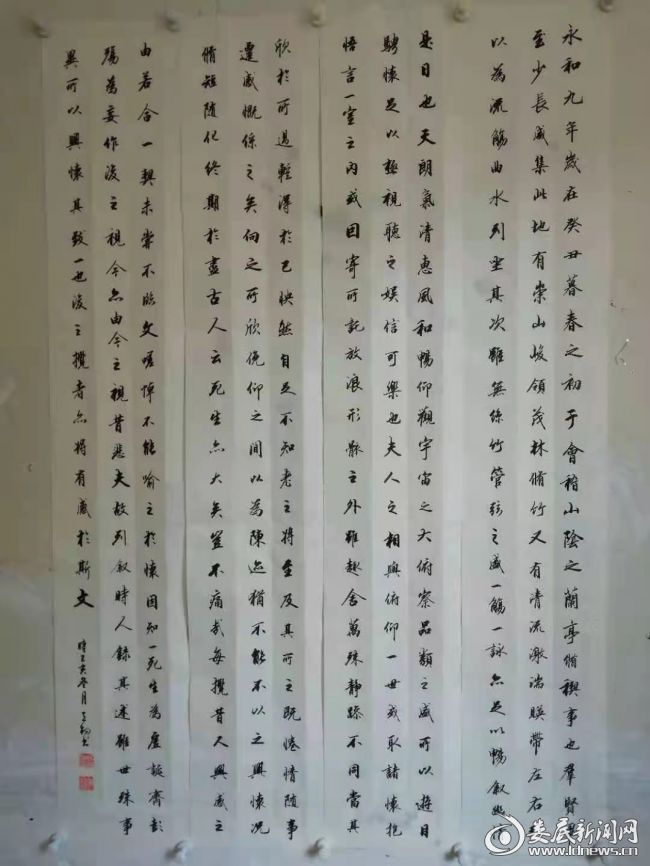 永和九年歲在癸丑暮春之初于會稽山陰之蘭亭脩禊事也群賢
至少長咸集此地有崇山峻領茂林脩竹又有清流激湍暎帶左右
以為流觴曲水列坐其次雖無絲竹管弦之盛一觴一詠亦足以暢敘幽
是日也天朗氣清惠風和暢仰觀宇宙之大俯察品類之盛所以遊目
騁懷足以極視聽之娛信可樂也夫人之相與俯仰一世或取諸懷抱
悟言一室之內或因寄所託放浪形骸之外雖趣舍萬殊靜躁不同當其
欣於所遇蹔得於己怏然自足不知老之將至及其所之既惓情隨事
遷感慨係之矣向之所欣俛仰之間以為陳迹猶不能不以之興懷況
脩短隨化終期於盡古人云死生亦大矣豈不痛哉每攬昔人興感之
由若合一契未嘗不臨文嗟悼不能喻之於懷固知一死生為虛誕齊彭
殤為妄作後之視今亦由今之視昔悲夫故列敘時人錄其述雖世殊事
異所以興懷其致一也後之攬者亦將有感於斯文
娄底新闻网
www.ldnews.cn